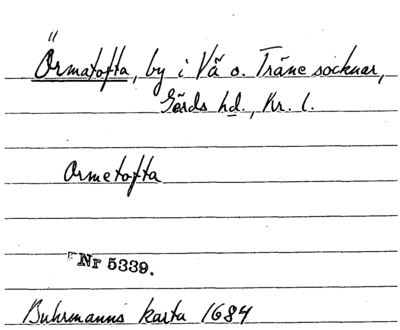 Örmatofta, by i Vä o. Träne socknar,
Gärds hd., Kr. l.
Ormetofta
Nr 5339.
Buhrmanns karta 1684